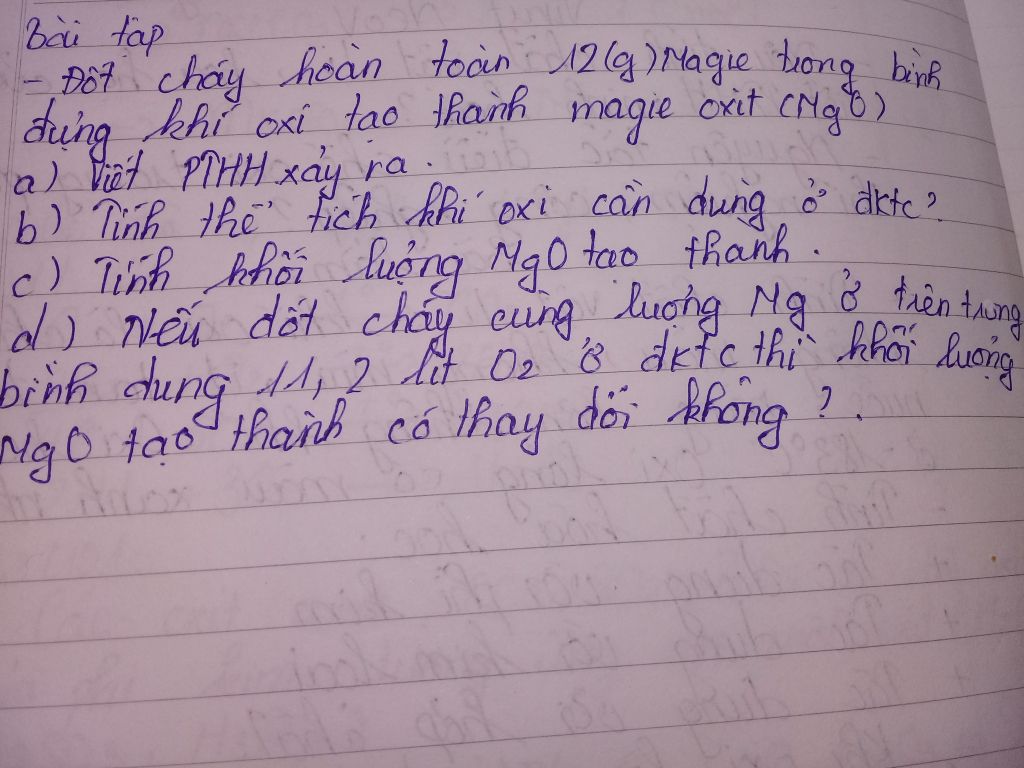 Bài tập
- Đốt cháy hoàn toàn 12(g) Magie trong bình
đựng khí oxi tạo thành magie oxit (MgO)
a) Viết PTHH xảy ra.
b) Tính thể tích khí oxi cần dùng ở đktc?
c) Tính khối lượng MgO tạo thành.
d) Nếu đốt cháy cùng lượng Mg ở trên trong
bình dung 11,2 lít O2 ở đktc thì khối lượng
MgO tạo thành có thay đổi không?.